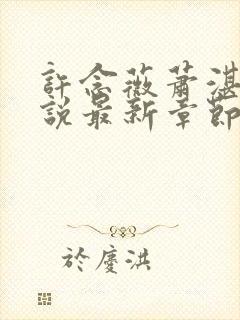 許念薇蕭湛
說最新章節
於慶洪